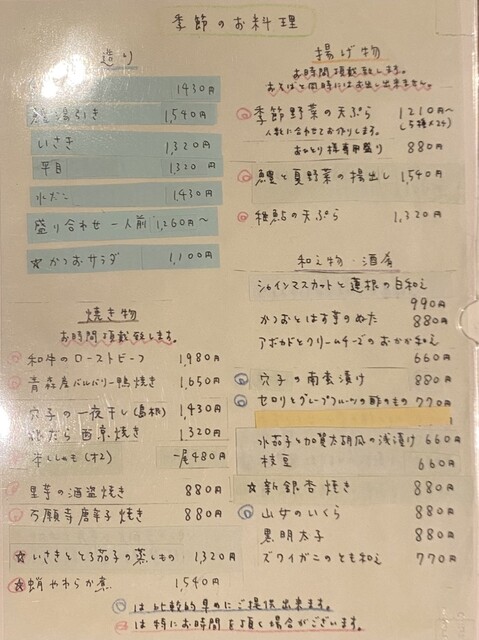 季節のお料理
造り
1430円
鱧湯引き 1,540円
いさき 1,320円
平目 1320円
水だこ 1,430円
盛り合わせ 一人前 1,260円〜
☆かつおサラダ 1,100円
焼き物
お時間頂戴致します。
和牛のローストビーフ 1,980円
青森産バルバリー鴨焼き 1,650円
穴子の一夜干し(島根) 1,430円
銀だら西京焼き 1,320円
本ししゃも(オス) 一尾480円
里芋の酒盗焼き 880円
万願寺唐辛子焼き 880円
☆いさきととろ茄子の蒸しもの 1,320円
☆蛸やわらか煮 1,540円
揚げ物
お時間頂戴致します。
おそばと同時にはお出し出来ません。
季節野菜の天ぷら 1210円〜
人数に合わせてお作りします。
おひとり様専用盛り 880円
鱧と夏野菜の揚出し 1,540円
稚鮎の天ぷら 1,320円
和え物・酒肴
シャインマスカットと蓮根の白和え
990円
かつおとはす芋のぬた 880円
アボカドとクリームチーズのおかか和え
660円
穴子の南蛮漬け 880円
セロリとグレープフルーツの酢のもの 770円
水茄子と加賀太胡瓜の浅漬け 660円
枝豆 660円
☆新銀杏焼き 880円
山女のいくら 880円
黒明太子 880円
ズワイガニのとも和え 770円
は比較的早めにご提供出来ます。
は特にお時間を頂く場合がございます。